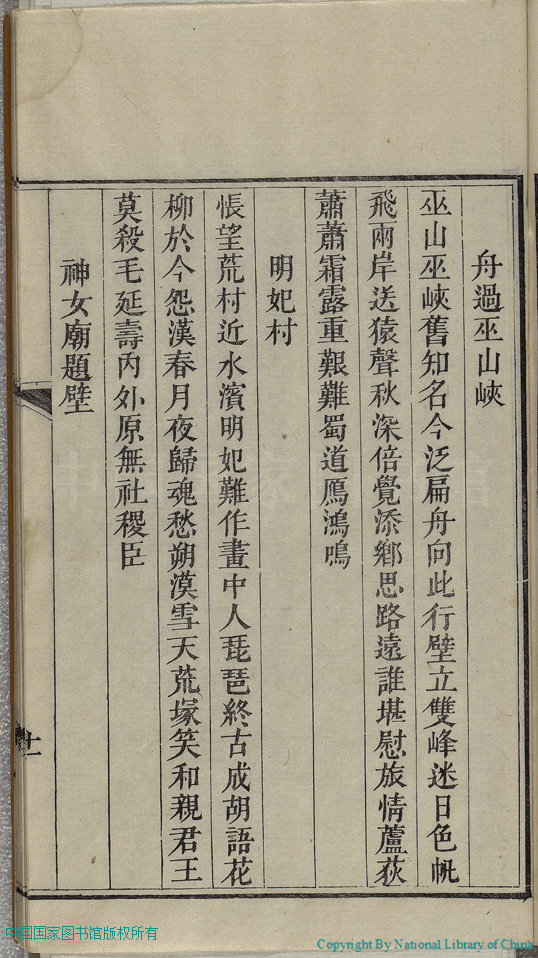 舟過巫山峽
巫山巫峽舊知名今泛扁舟向此行壁立雙峰迷日色帆
飛兩岸送猿聲秋深倍覺添鄉思路遠誰堪慰旅情蘆荻
蕭蕭霜露重艱難蜀道鴈鴻鳴
明妃村
悵望荒村近水濱明妃難作畫中人琵琶終古成胡語花
柳於今怨漢春月夜歸魂愁朔漠雪天荒塚笑和親君王
莫殺毛延壽內外原無社稷臣
神女廟題壁
中国国家图书馆版权所有
Copyright By National Library of China